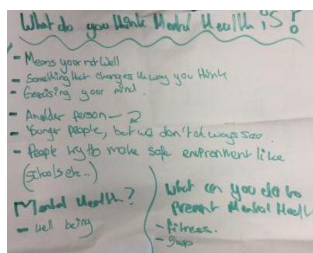 What do you think Mental Health is?
- Means your not well
- Something that changes the way you think
- Exercising your mind.
- Another person -
- Younger people, but we don't always see
- People try to make safe environment like
(schools etc..)
Mental Health?
- well being
What can you do to
prevent Mental Health
- Fitness.